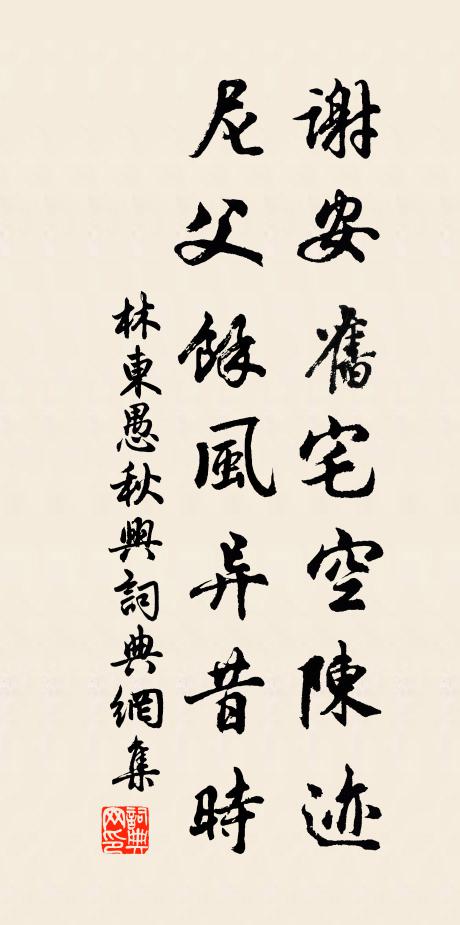 謝安舊宅空陳迹
尼父餘風异昔時
林東愚秋興詞典網集
詞典网印